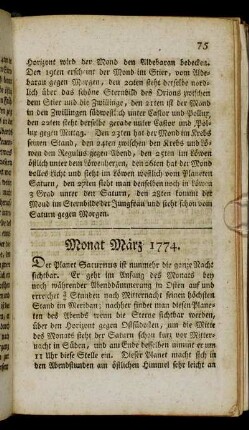 75
Horizont wird der Mond den Aldebaran bedecken.
Den 19ten erscheint der Mond im Stier, vom Alde-
baran gegen Morgen, den 20ten steht derselbe nord-
lich über das schöne Sternbild des Orions zwischen
dem Stier und die Zwillinge, den 21ten ist der Mond
in den Zwillingen südwestlich unter Castor und Pollux,
den 22ten steht derselbe gerade unter Castor und Pol-
lux gegen Mittag. Den 23ten hat der Mond im Krebs
seinen Stand, den 24ten zwischen den Krebs und Lö-
wen den Regulus gegen Abend, den 25ten im Löwen
östlich unter dem Löwenherzen, den 26ten hat der Mond
volles Licht und steht im Löwen westlich vom Planeten
Saturn, den 27ten sieht man denselben noch im Löwen
3 Grad unter den Saturn, den 28ten kommt der
Mond im Sternbilde der Jungfrau und steht schon vom
Saturn gegen Morgen.
Monat März 1774.
Der Planet Saturnus ist nunmehr die ganze Nacht
sichtbar. Er geht im Anfang des Monats bey
noch währender Abenddämmerung in Osten auf und
erreichet Stunden nach Mitternacht seinen höchsten
Stand im Meridian; nachher findet man diesen Plane-
ten des Abends wenn die Sterne sichtbar werden,
über den Horizont gegen Ostsüdosten, um die Mitte
des Monats steht der Saturn schon kurz vor Mitter-
nacht in Süden, und am Ende desselben nimmt er um
11 Uhr diese Stelle ein. Dieser Planet macht sich in
den Abendstunden am östlichen Himmel sehr leicht an